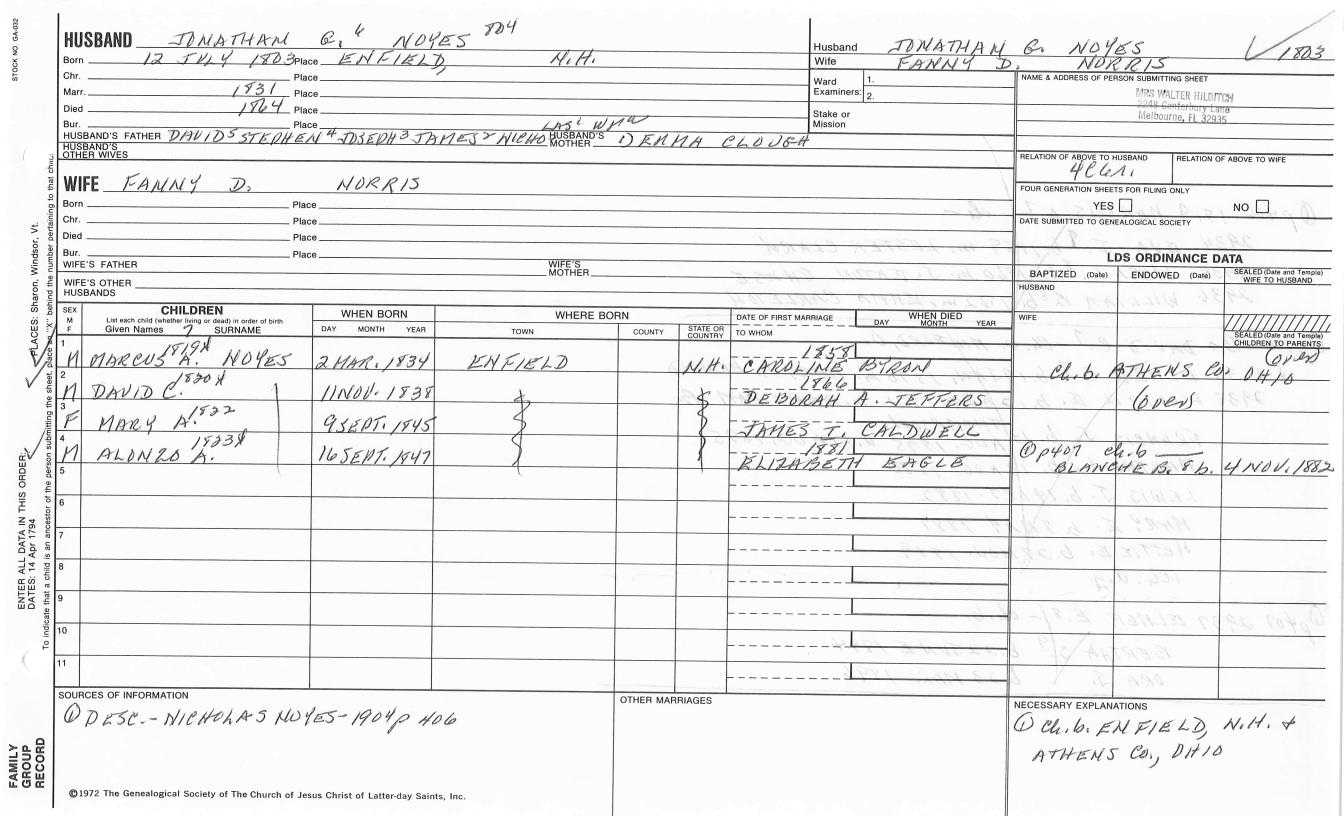 STOCK NO. GA-032
HUSBAND JONATHAM G. 6 NOYES 804
Born 12 JULY 1803 Place ENFIELD, N.H.
Chr. Place
Marr. 1831 Place
Died 1864 Place
Bur. Place
HUSBAND'S FATHER DAVID5 STEPHEN4 JOSEPH3 JAMES2 NICHO HUSBAND'S MOTHER 1) EMMA CLOUGH
HUSBAND'S OTHER WIVES
Husband JONATHAM G. NOYES 1803
Wife FANNY D. NORRIS
Ward Examiners: 1.
2.
Stake or Mission
NAME & ADDRESS OF PERSON SUBMITTING SHEET
MRS WALTER HILDITCH
2248 Canterbury Lane
Melbourne, FL 32935
RELATION OF ABOVE TO HUSBAND RELATION OF ABOVE TO WIFE
FOUR GENERATION SHEETS FOR FILING ONLY
YES NO
DATE SUBMITTED TO GENEALOGICAL SOCIETY
WIFE FANNY D. NORRIS
Born Place
Chr. Place
Died Place
Bur. Place
WIFE'S FATHER WIFE'S MOTHER
WIFE'S OTHER HUSBANDS
LDS ORDINANCE DATA
BAPTIZED (Date) ENDOWED (Date) SEALED (Date and Temple) WIFE TO HUSBAND
HUSBAND
WIFE
SEALED (Date and Temple) CHILDREN TO PARENTS
SEX M F CHILDREN WHEN BORN WHERE BORN DATE OF FIRST MARRIAGE WHEN DIED
List each child (whether living or dead) in order of birth
Given Names 7 SURNAME DAY MONTH YEAR TOWN COUNTY STATE OR COUNTRY TO WHOM DAY MONTH YEAR
1 1819X 1858 (over)
M MARCUS A. NOYES 2 MAR. 1834 ENFIELD N.H. CAROLINE BYRON ch. b. ATHENS Co. OHIO
2 1820X 1866
M DAVID C. 11 NOV. 1838 DEBORAH A. JEFFERS (over)
3 1822
F MARY A. 9 SEPT. 1845 JAMES I. CALDWELL
4 1823X 1881 ① p407 ch. b
M ALONZO A. 16 SEPT. 1847 ELIZABETH EAGLE BLANCHE B. 8 b. 4 NOV. 1882
5
6
7
8
9
10
11
SOURCES OF INFORMATION
① DESC.- NICHOLAS NOYES-1904 p 406
OTHER MARRIAGES
NECESSARY EXPLANATIONS
① ch. b. ENFIELD, N.H. &
ATHENS Co., OHIO
©1972 The Genealogical Society of The Church of Jesus Christ of Latter-day Saints, Inc.
FAMILY
GROUP
RECORD
ENTER ALL DATA IN THIS ORDER:
DATES: 14 Apr 1794
PLACES: Sharon, Windsor, Vt.
To indicate that a child is an ancestor of the person submitting the sheet, place an "X" behind the number pertaining to that child.